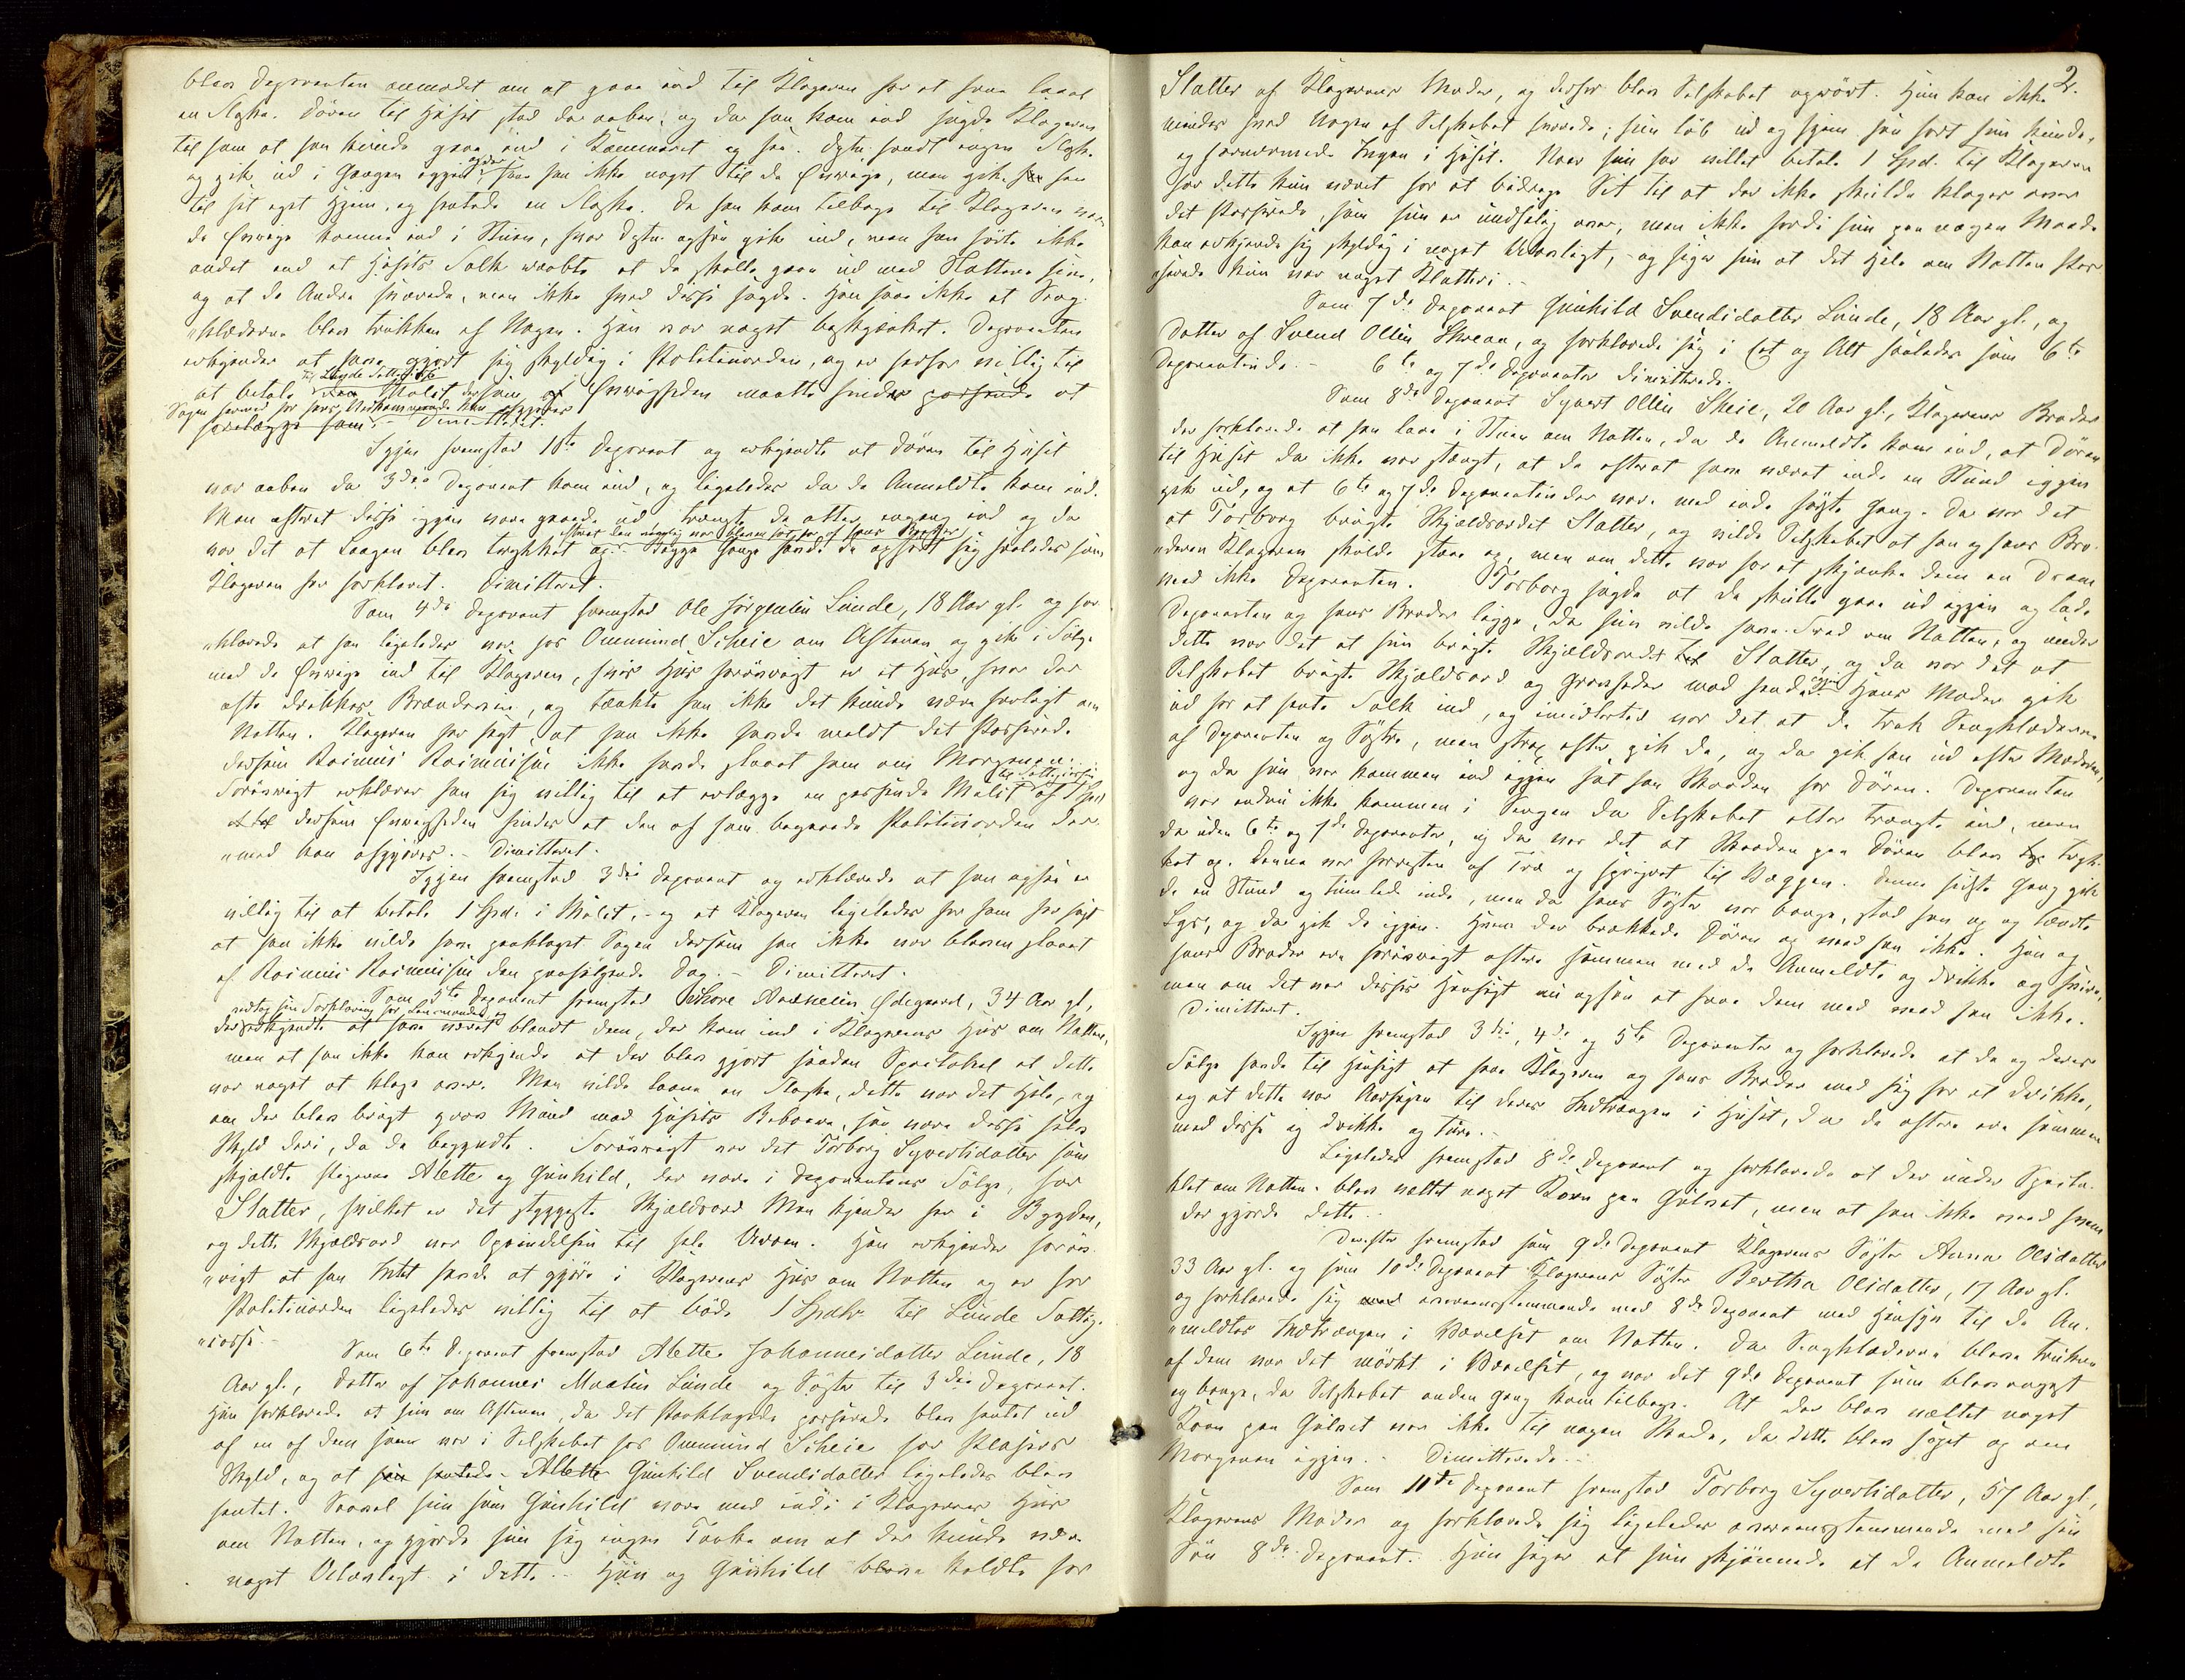 blev Deponenten anmodet om at gaae ind til Klageren for at faae laant
en Flaske. Døren til Huset stod da aaben, og da han kom ind sagde Klageren
til ham at han kunde gaae ind i Kammeret og see. Dptn. fandt ingen Flaske
og gik ud i Gangen iggjen, saae han ikke noget til de Øvrige, men gik han
til sit eget Hjem, og hentede en Flaske. Da han kom tilbage til Klageren vare
de Øvrige komne ind i Stuen, hvor Dptn. ogsaa gik ind, men han hørte ikke
andet end at Husets Folk raabte at de skulle gaae ud med Flatterne sine,
og at de Andre svarede, men ikke hvad disse sagde. Han saae ikke at Seng-
klæderne blev trukken af Nogen. Han var noget beskjænket. Deponenten
erkjender at have gjort sig skyldig i Politiuorden, og er derfor villig til
at betale til Lunde Fattigk. en Mulct dersom Øvrigheden maatte finde passende at
Sagen hermed for hans Vedkommende kan afgjøres
forelægge ham. Dimitteret.
Iggjen fremstod 1ste Deponent og erkjendte at Døren til Huset
var aaben da 3die Deponent kom ind, og ligeledes da de Anmeldte kom ind.
Men efterat disse iggjen vare gaaede ud trængte de atter engang ind og da
efterat den nemlig var bleven sat for af hans Broder
var det at Laagen blev trykket op. Begge Gange havde de opført sig saaledes som
Klageren har forklaret. Dimitteret.
Som 4de Deponent fremstod Ole Jørgensen Lunde, 18 Aar gl. og for-
klarede at han ligeledes var hos Ommund Scheie om Aftenen og gik i Følge
med de Øvrige ind til Klageren, hvis Huus forøvrigt er et Huus, hvor der
ofte drikkes Brændeviin, og tænkte han ikke det kunde være farligt om
Natten. Klageren har sagt, at han ikke havde meldt det Passerede
dersom Rasmus Rasmussen ikke havde slaaet ham om Morgenen.
til Fattigkassen
Forøvrigt erklærer han sig villig til at erlægge en passende Mulct af 1 Spd
dersom Øvrigheden finder at den af ham begaaede Politiuorden der-
med kan afgjøres. Dimitteret.
Iggjen fremstod 3die Deponent og erklærede at han ogsaa er
villig til at betale 1 Spd. i Mulct, og at Klageren ligeledes har for ham sagt
at han ikke vilde have paaklaget Sagen dersom han ikke var bleven slaaet
af Rasmus Rasmussen den paafølgende Dag. Dimitteret.
Som 5te Deponent fremstod Thore Ødegaard, 34 Aar gl,
vedtog sin Forklaring for Lensmanden og
der erkjendte at have været blandt dem, der kom ind i Klagerens Huus om Natten,
men at han ikke kan erkjende at der blev gjort saadan Spectakel at dette
var noget at klage over. Man vilde laane en Flaske, dette var det Hele, og
om der blev brugt grov Mund mod Husets Beboere, saa vare disse selv
Skyld deri, da de begyndte. Forøvrigt var det Torborg Syvertsdatter som
skjældte Pigerne Alette og Gunhild, der vare i Deponentens Følge, for
Flatter, hvilket er det styggeste Skjældsord Man kjender her i Bygden,
og dette Skjældsord var Oprindelsen til hele Uroen. Han erkjender forøv-
rigt at han Intet havde at gjøre i Klagerens Huus om Natten og er for
Politiuorden ligeledes villig til at bøde 1 Spdlr. til Lunde Fattig-
casse.
Som 6te Deponent fremstod Alette Johannesdatter Lunde, 18
Aar gl., Datter af Johannes Lunde og Søster til 3die Deponent.
Hun forklarede at hun om Aftenen, da det Paaklagede passerede blev hentet ud
af en af dem som var i Selskabet hos Ommund Scheie for Plaseers
Skyld, og at Gunhild Svendsdatter ligeledes blev
hentet. Saavel hun som Gunhild vare med inde i Klagerens Huus
om Natten, og gjorde hun sig ingen Tanke om at der kunde være
noget Ulovligt i dette. Hun og Gunhild bleve kaldte for
2.
Flatter af Klagerens Moder, og derfor blev Selskabet oprørt. Hun kan ikke
mindes hvad Nogen af Selskabet svarede; hun løb ud og hjem saa fort hun kunde,
og fornærmede Ingen i Huset. Naar hun har villet betale 1 Spd. til Klageren
har dette kun været for at bidrage Sit til at der ikke skulde klages over
det Passerede, som hun er undseelig over, men ikke fordi hun paa nogen Maade
kan erkjende sig skyldig i noget Ulovligt, og siger hun at det Hele om Natten pas-
serede kun var noget Klatteri.
Som 7de Deponent Gunhild Svendsdatter Lunde, 18 Aar gl., og
Datter af Svend Ollsen Skreaa, og forklarede sig i Et og Alt saaledes som 6te
Deponentinde. 6te og 7de Deponenter dimitterede.
Som 8de Deponent Syvert Ollsen Scheie, 20 Aar gl., Klagerens Broder
der forklarede at han laae i Stuen om Natten, da de Anmeldte kom ind, at Døren
til Huset da ikke var stængt, at de efterat have været inde en Stund iggjen
gik ud, og at 6te og 7de Deponentinder vare med inde første Gang. Da var det
at Torborg brugte Skjældsordet Flatter, og vilde Selskabet at han og hans Bro-
deren Klageren skulde staae op, men om dette var for at skjænke dem en Dram
veed ikke Deponenten. Torborg sagde at de skulle gaae ud iggjen og lade
Deponenten og hans Broder ligge, da hun vilde have Fred om Natten, og under
dette var det at hun brugte Skjældsordet Flatter, og da var det at
Selskabet brugte Skjældsord og Grovheder mod hende iggjen. Hans Moder gik
ud for at hente Folk ind, og imidlertid var det at de trak Sengklæderne
af Deponenten og Søstre, men strax efter gik de, og da gik han ud efter Moderen,
og da hun var kommen ind iggjen sat han Skaaden for Døren. Deponenten
var endnu ikke kommen i Sengen da Selskabet atter trængte ind, men
da uden 6te og 7de Deponenter, og da var det at Skaaden paa Døren blev tryk-
ket op. Denne var forresten af Træ og spigret til Væggen. Denne sidste Gang gik
de en Stund og tumlede inde, men da hans Søster var bange, stod han op og tændte
Lys, og da gik de iggjen. Hvem der brækkede Døren op veed han ikke. Han og
hans Broder ere forøvrigt oftere sammen med de Anmeldte og drikke og svire,
men om det var disses Hensigt nu ogsaa at faae dem med veed han ikke.
Dimitteret.
Iggjen fremstod 3die, 4de og 5te Deponenter og forklarede at de og deres
Følge havde til Hensigt at faae Klageren og hans Broder med sig for at drikke,
og at dette var Aarsagen til deres Indtrængen i Huset, da de oftere ere sammen
med disse og drikke og ture.
Ligeledes fremstod 8de Deponent og forklarede at der under Specta-
klet om Natten blev væltet noget Korn paa Gulvet, men at han ikke veed hvem
der gjorde dette.
Derefter fremstod som 9de Deponent Klagerens Søster Anna Olsdatter
33 Aar gl. og som 10de Deponent Klagerens Søster Bertha Olsdatter, 17 Aar gl.
og forklarede sig overeensstemmende med 8de Deponent med Hensyn til de An-
meldtes Indtrængen i Værelset om Natten. Da Sengklæderne bleve trukne
af dem var det mørkt i Værelset, og var det 9de Deponent som blev opvægt
og bange, da Selskabet anden Gang kom tilbage. At der blev væltet noget
Korn paa Gulvet var ikke til nogen Skade, da dette blev føiet op om
Morgenen iggjen. Dimitterede.
Som 11te Deponent fremstod Torborg Syvertsdatter, 57 Aar gl,
Klagerens Moder og forklarede sig ligeledes overeensstemmende med sin
Søn 8de Deponent. Hun siger at hun skjønnede at de Anmeldte